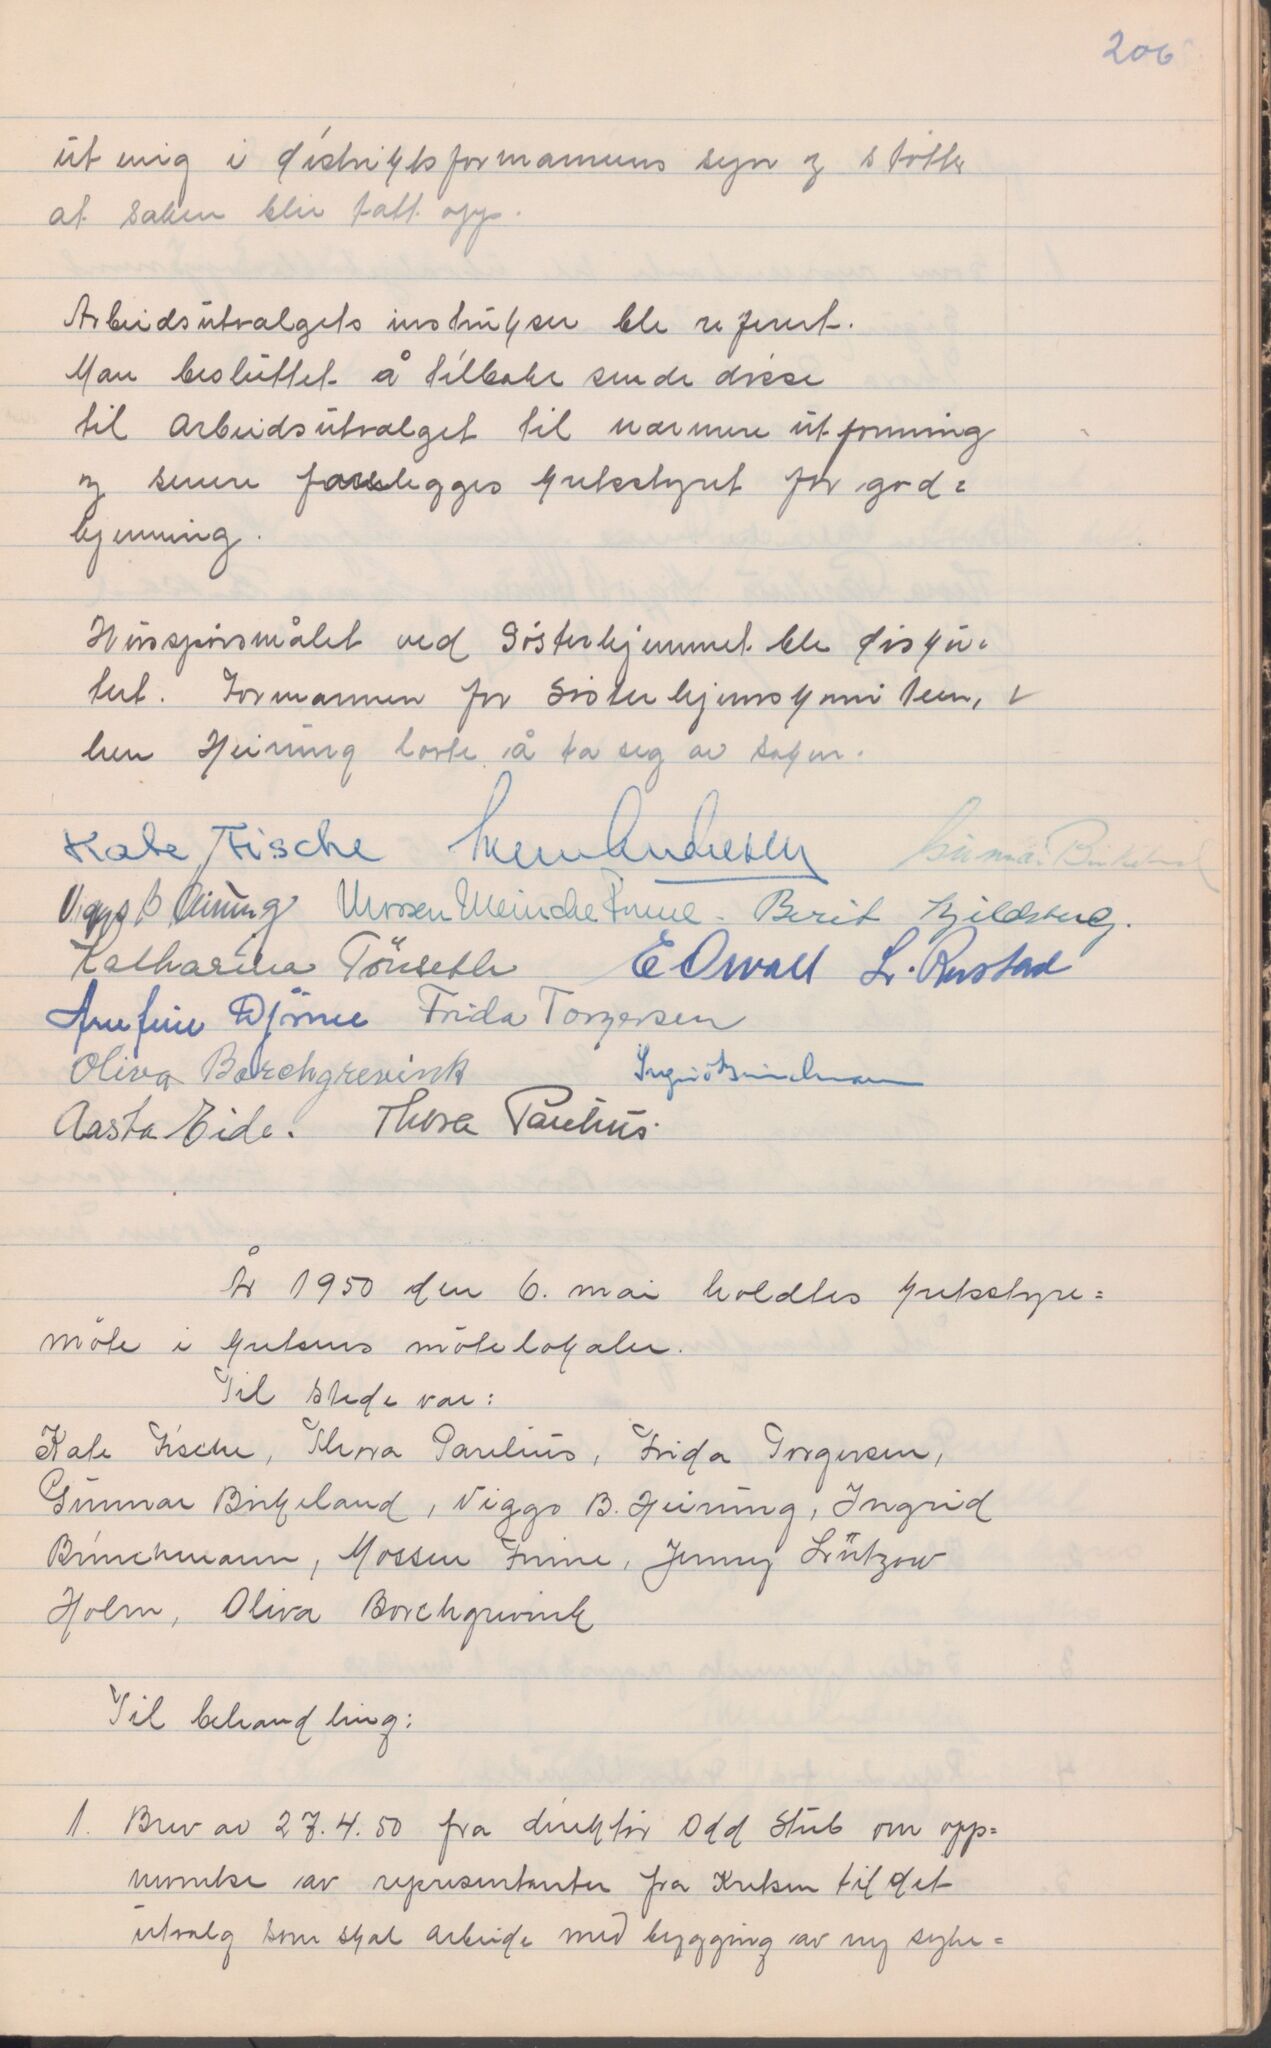 206
ut enig i distriktsformannens syn og støtte
at saken blir tatt opp.
Arbeidsutvalgets instrukser ble referert.
Man besluttet å tilbake sende disse
til Arbeidsutvalget til nærmere utforming
og senere forelegges kretsstyret for god=
kjenning.
Husspørsmålet ved Søsterhjemmet ble disku=
tert. Formannen for Søsterhjemskomiteen,
herr Heiring lovte å ta seg av saken.
Kate Fische Andresen Gunnar Birkeland
Viggo B Heiring Mossen Meinche Finne - Berit Kjeldsberg.
Katharina Tönseth E Orvall L. Rustad
Djörne Frida Torgersen
Oliva Borchgrevink Ingrid Brinchmann
Aasta Eide. Thora Paulius.
År 1950 den 6. mai holdtes kretsstyre=
møte i kretsens møtelokaler.
Til stede var:
Kate Fische, Thora Paulius, Frida Torgersen,
Gunnar Birkeland, Viggo B. Heiring, Ingrid
Brinchmann, Mossen Finne, Jenny Lützow
Holm, Oliva Borchgrevink
Til behandling:
1. Brev av 27.4.50 fra direktør Odd Stub om opp=
nevnelse av representanter fra Kretsen til det
utvalg som skal arbeide med bygging av ny syke=